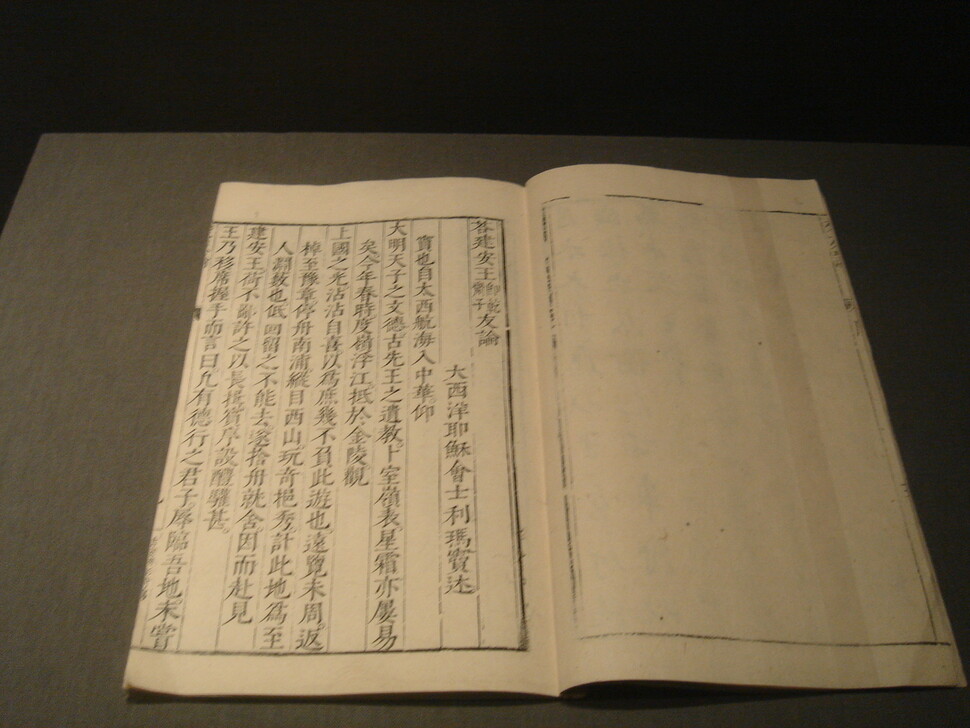 答建安王友論
大西洋耶穌會士利瑪竇述
竇也自太西航海入中華。仰
大明天子之文德古先王之遺教。卜室嶺表。星霜亦屢易
矣今年春時度嶺浮江。抵於金陵。觀
上國之光沾沾自喜以爲庶幾不負此遊也。遠覽未周。返
棹至豫章停舟南浦縱目西山。玩奇挹秀。計此地爲至
人淵藪也低回留之不能去。遂捨舟就舍。因而赴見
建安王荷不鄙許之以長揖賓序設醴驩甚。
王乃移席握手而言曰凡有德行之君子。辱臨吾地。未嘗